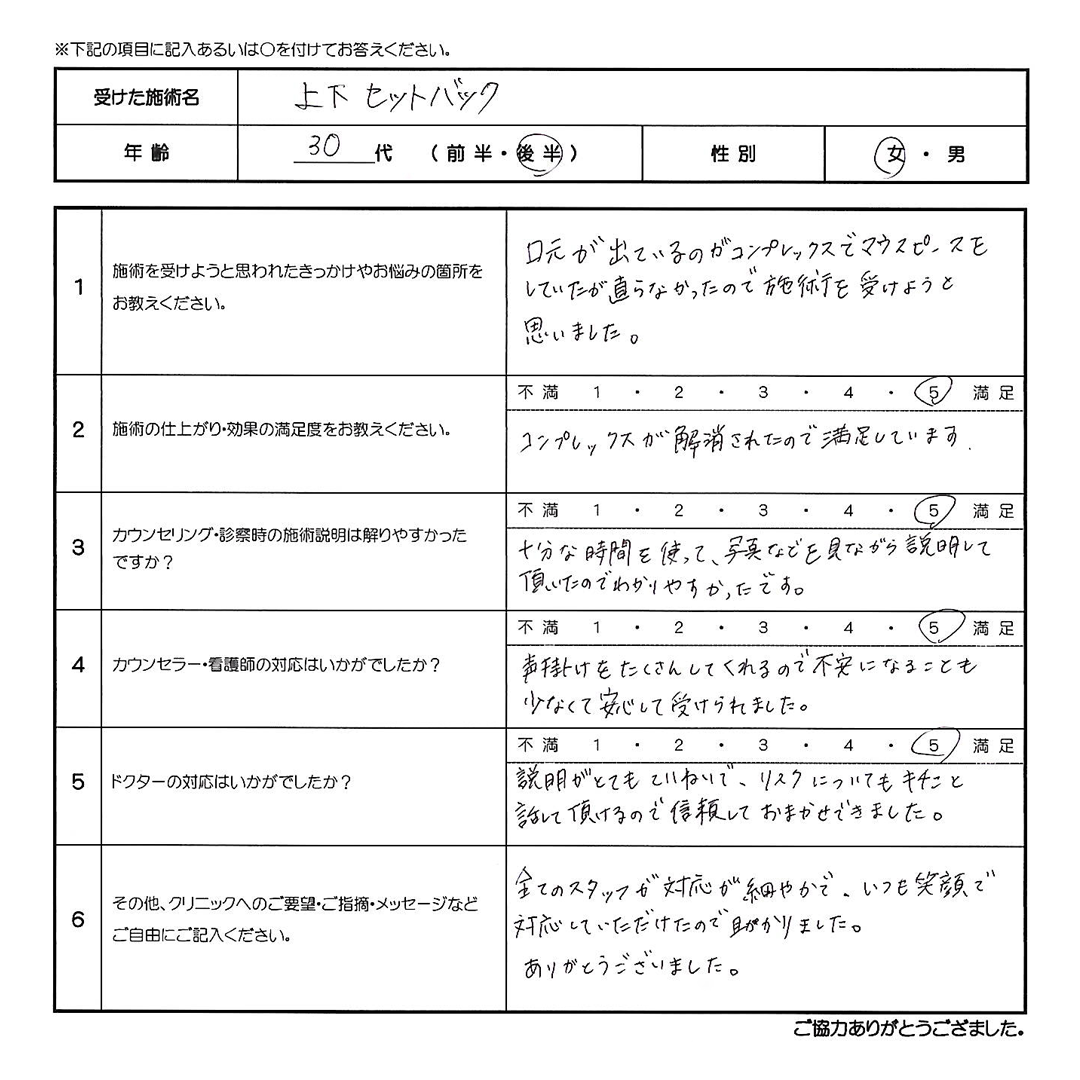 ※下記の項目に記入あるいは〇を付けてお答えください。
受けた施術名 上下 セットバック
年齢 30代 (前半・後半) 性別 女・男
1 施術を受けようと思われたきっかけやお悩みの箇所を
お教えください。
口元が出ているのがコンプレックスでマウスピースを
していたが直らなかったので施術を受けようと
思いました。
不満 1 ・ 2 ・ 3 ・ 4 ・ 5 満足
2 施術の仕上がり・効果の満足度をお教えください。
コンプレックスが解消されたので満足しています.
不満 1 ・ 2 ・ 3 ・ 4 ・ 5 満足
3 カウンセリング・診察時の施術説明は解りやすかった
ですか？
十分な時間を使って、写真などを見ながら説明して
頂いたのでわかりやすかったです。
不満 1 ・ 2 ・ 3 ・ 4 ・ 5 満足
4 カウンセラー・看護師の対応はいかがでしたか？
声掛けをたくさんしてくれるので不安になることも
少なくて安心して受けられました。
不満 1 ・ 2 ・ 3 ・ 4 ・ 5 満足
5 ドクターの対応はいかがでしたか？
説明がとてもていねいで、リスクについてもキチンと
話して頂けるので信頼しておまかせできました。
6 その他、クリニックへのご要望・ご指摘・メッセージなど
ご自由にご記入ください。
全てのスタッフが対応が細やかで、いつも笑顔で
対応していただけたので助かりました。
ありがとうございました。
ご協力ありがとうござました。